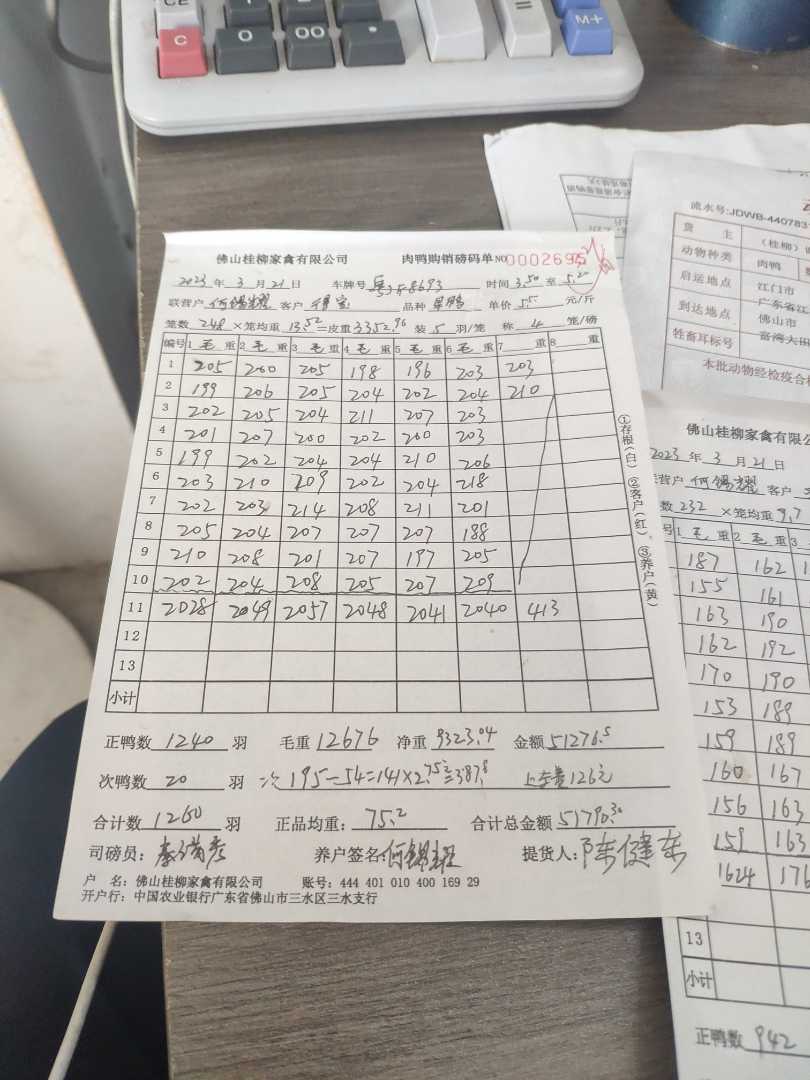 CE
C 0 00 · = M+
流水号:JDWB-440783
货 主 (桂柳)
动物种类 肉鸭
启运地点 江门市
广东省江
到达地点 佛山市
富湾大田
牲畜耳标号
本批动物经检疫合格
佛山桂柳家禽有限公司 肉鸭购销磅码单 NO 0002695
2023 年 3 月 21 日 车牌号 时间 3.50 至 5.20
联营户 何锡耀 客户 品种 单价 5.5 元/斤
笼数 248 ×笼均重 13.52 =皮重 3352.96 装 5 羽/笼 称 4 笼/磅
编号 1 毛 重 2 毛 重 3 毛 重 4 毛 重 5 毛 重 6 毛 重 7 重 8 重
1 205 200 205 198 196 203 203
2 199 206 205 204 202 204 210
3 202 205 204 211 207 203
4 201 207 200 202 200 203
5 199 202 204 204 210 206
6 203 210 209 202 204 218
7 202 203 214 208 211 201
8 205 204 207 207 207 188
9 210 208 201 207 197 205
10 202 204 208 205 207 209
11 2028 2049 2057 2048 2041 2040 413
12
13
小计
①存根(白) ②客户(红) ③养户(黄)
正鸭数 1240 羽 毛重 12676 净重 9323.04 金额 51276.5
次鸭数 20 羽 次 195-54=141×2.75=387.8 上车费126元
合计数 1260 羽 正品均重: 75.2 合计总金额 51790.30
司磅员: 养户签名: 何锡耀 提货人: 陈健东
户 名: 佛山桂柳家禽有限公司 账号: 444 401 010 400 169 29
开户行: 中国农业银行广东省佛山市三水区三水支行
佛山桂柳家禽有限公
2023 年 3 月 21 日
营户 何锡耀 客户
数 232 ×笼均重 9.7
号 1 毛 重 2 毛 重 3
187 162
155 161
163 190
162 192
170 190
153 189
159 189
160 167
156 163
159 163
1624 176
13
小计
正鸭数 942